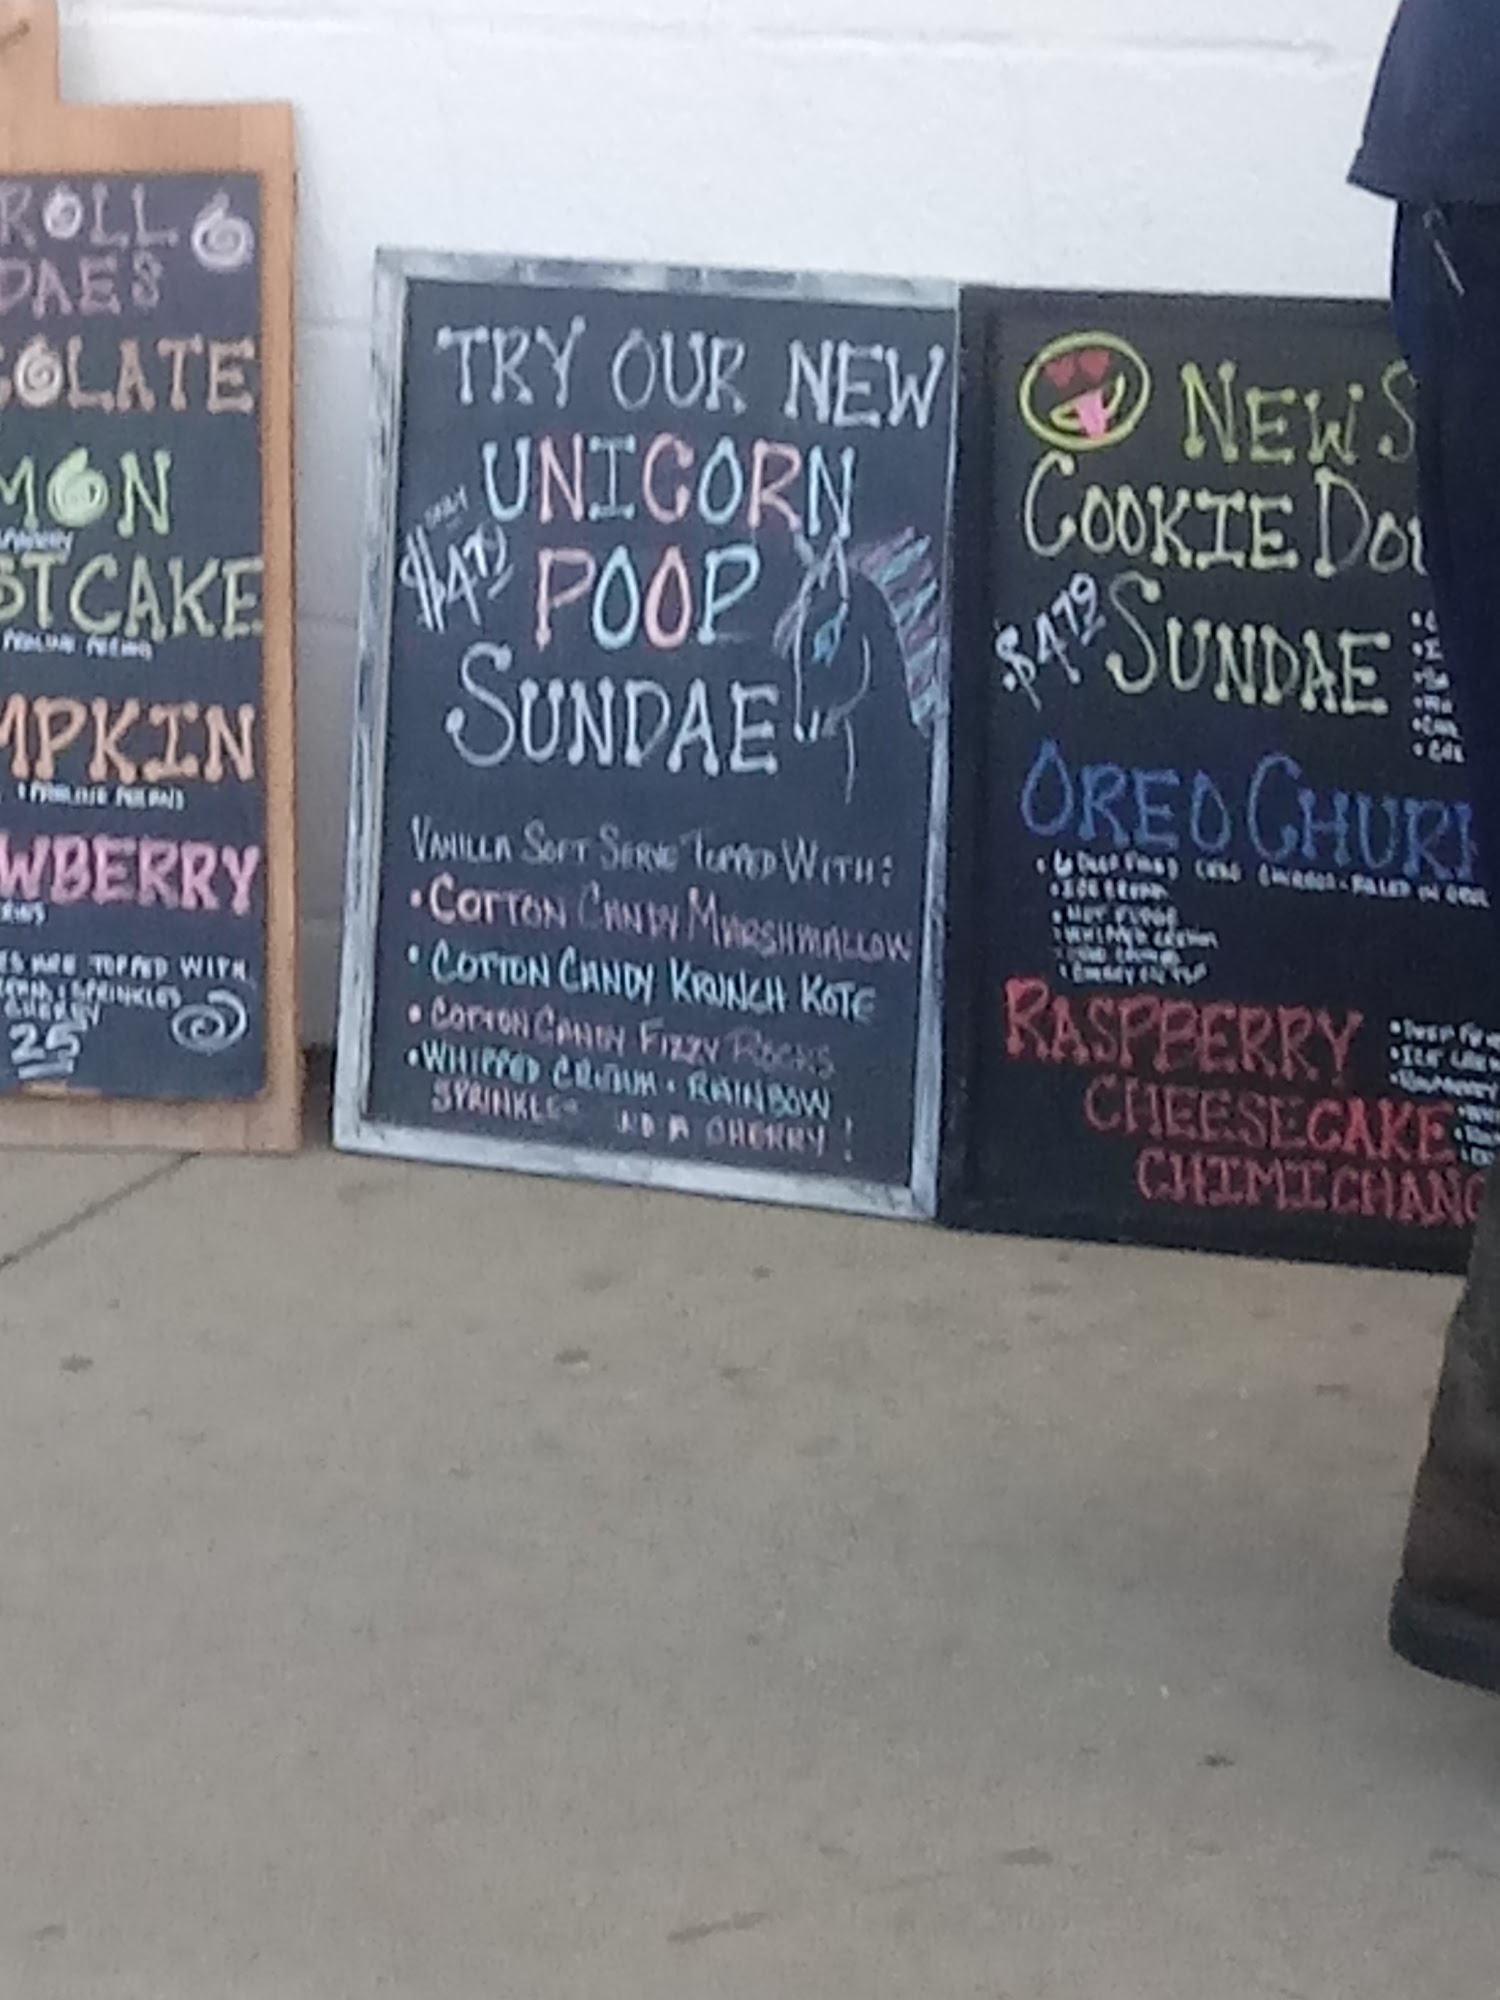 ROLL
DAES
COLATE
MON
STCAKE
MPKIN
WBERRY
ES ARE TOPPED WITH
SPRINKLES
CHERRY
25
TRY OUR NEW
UNICORN
ONLY
$4.79
POOP
SUNDAE
VANILLA SOFT SERVE TOPPED WITH:
• COTTON CANDY MARSHMALLOW
• COTTON CANDY KRUNCH KOTE
• COTTON CANDY FIZZY ROCKS
• WHIPPED CREAM • RAINBOW
SPRINKLES ND A CHERRY!
NEW S
COOKIE DOU
$4.79 SUNDAE
OREO CHURR
• 6 DEEP FRIED OREO CHURROS - ROLLED IN OREO
• ICE CREAM
• HOT FUDGE
• WHIPPED CREAM
• CHERRY ON TOP
RASPBERRY
CHEESECAKE
CHIMICHANG